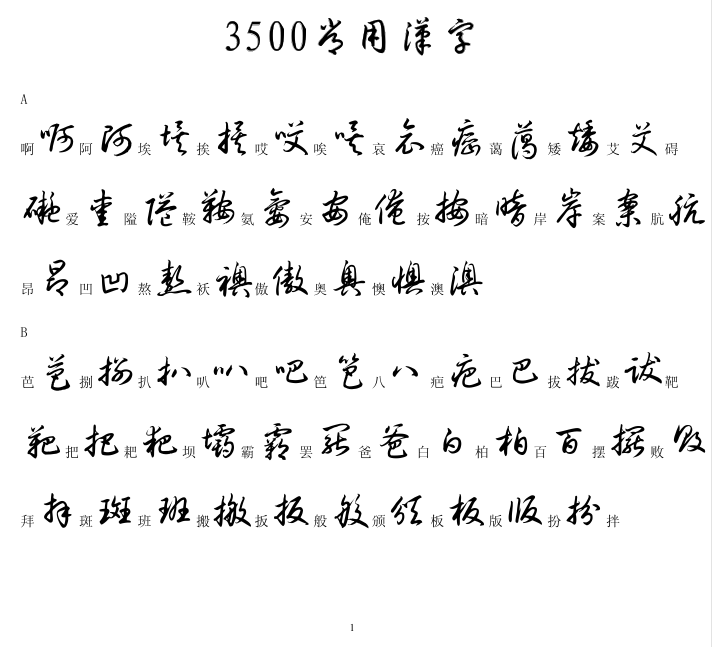 3500常用漢字
A
啊啊阿阿埃埃挨挨哎哎唉唉哀哀癌癌蔼藹矮矮艾艾碍
礙爱愛隘隘鞍鞍氨氨安安俺俺按按暗暗岸岸案案肮肮
昂昂凹凹熬熬袄襖傲傲奥奧懊懊澳澳
B
芭芭捌捌扒扒叭叭吧吧笆笆八八疤疤巴巴拔拔跋跋靶
靶把把耙耙坝壩霸霸罢罷爸爸白白柏柏百百摆擺败敗
拜拜斑斑班班搬搬扳扳般般颁頒板板版版扮扮拌
1